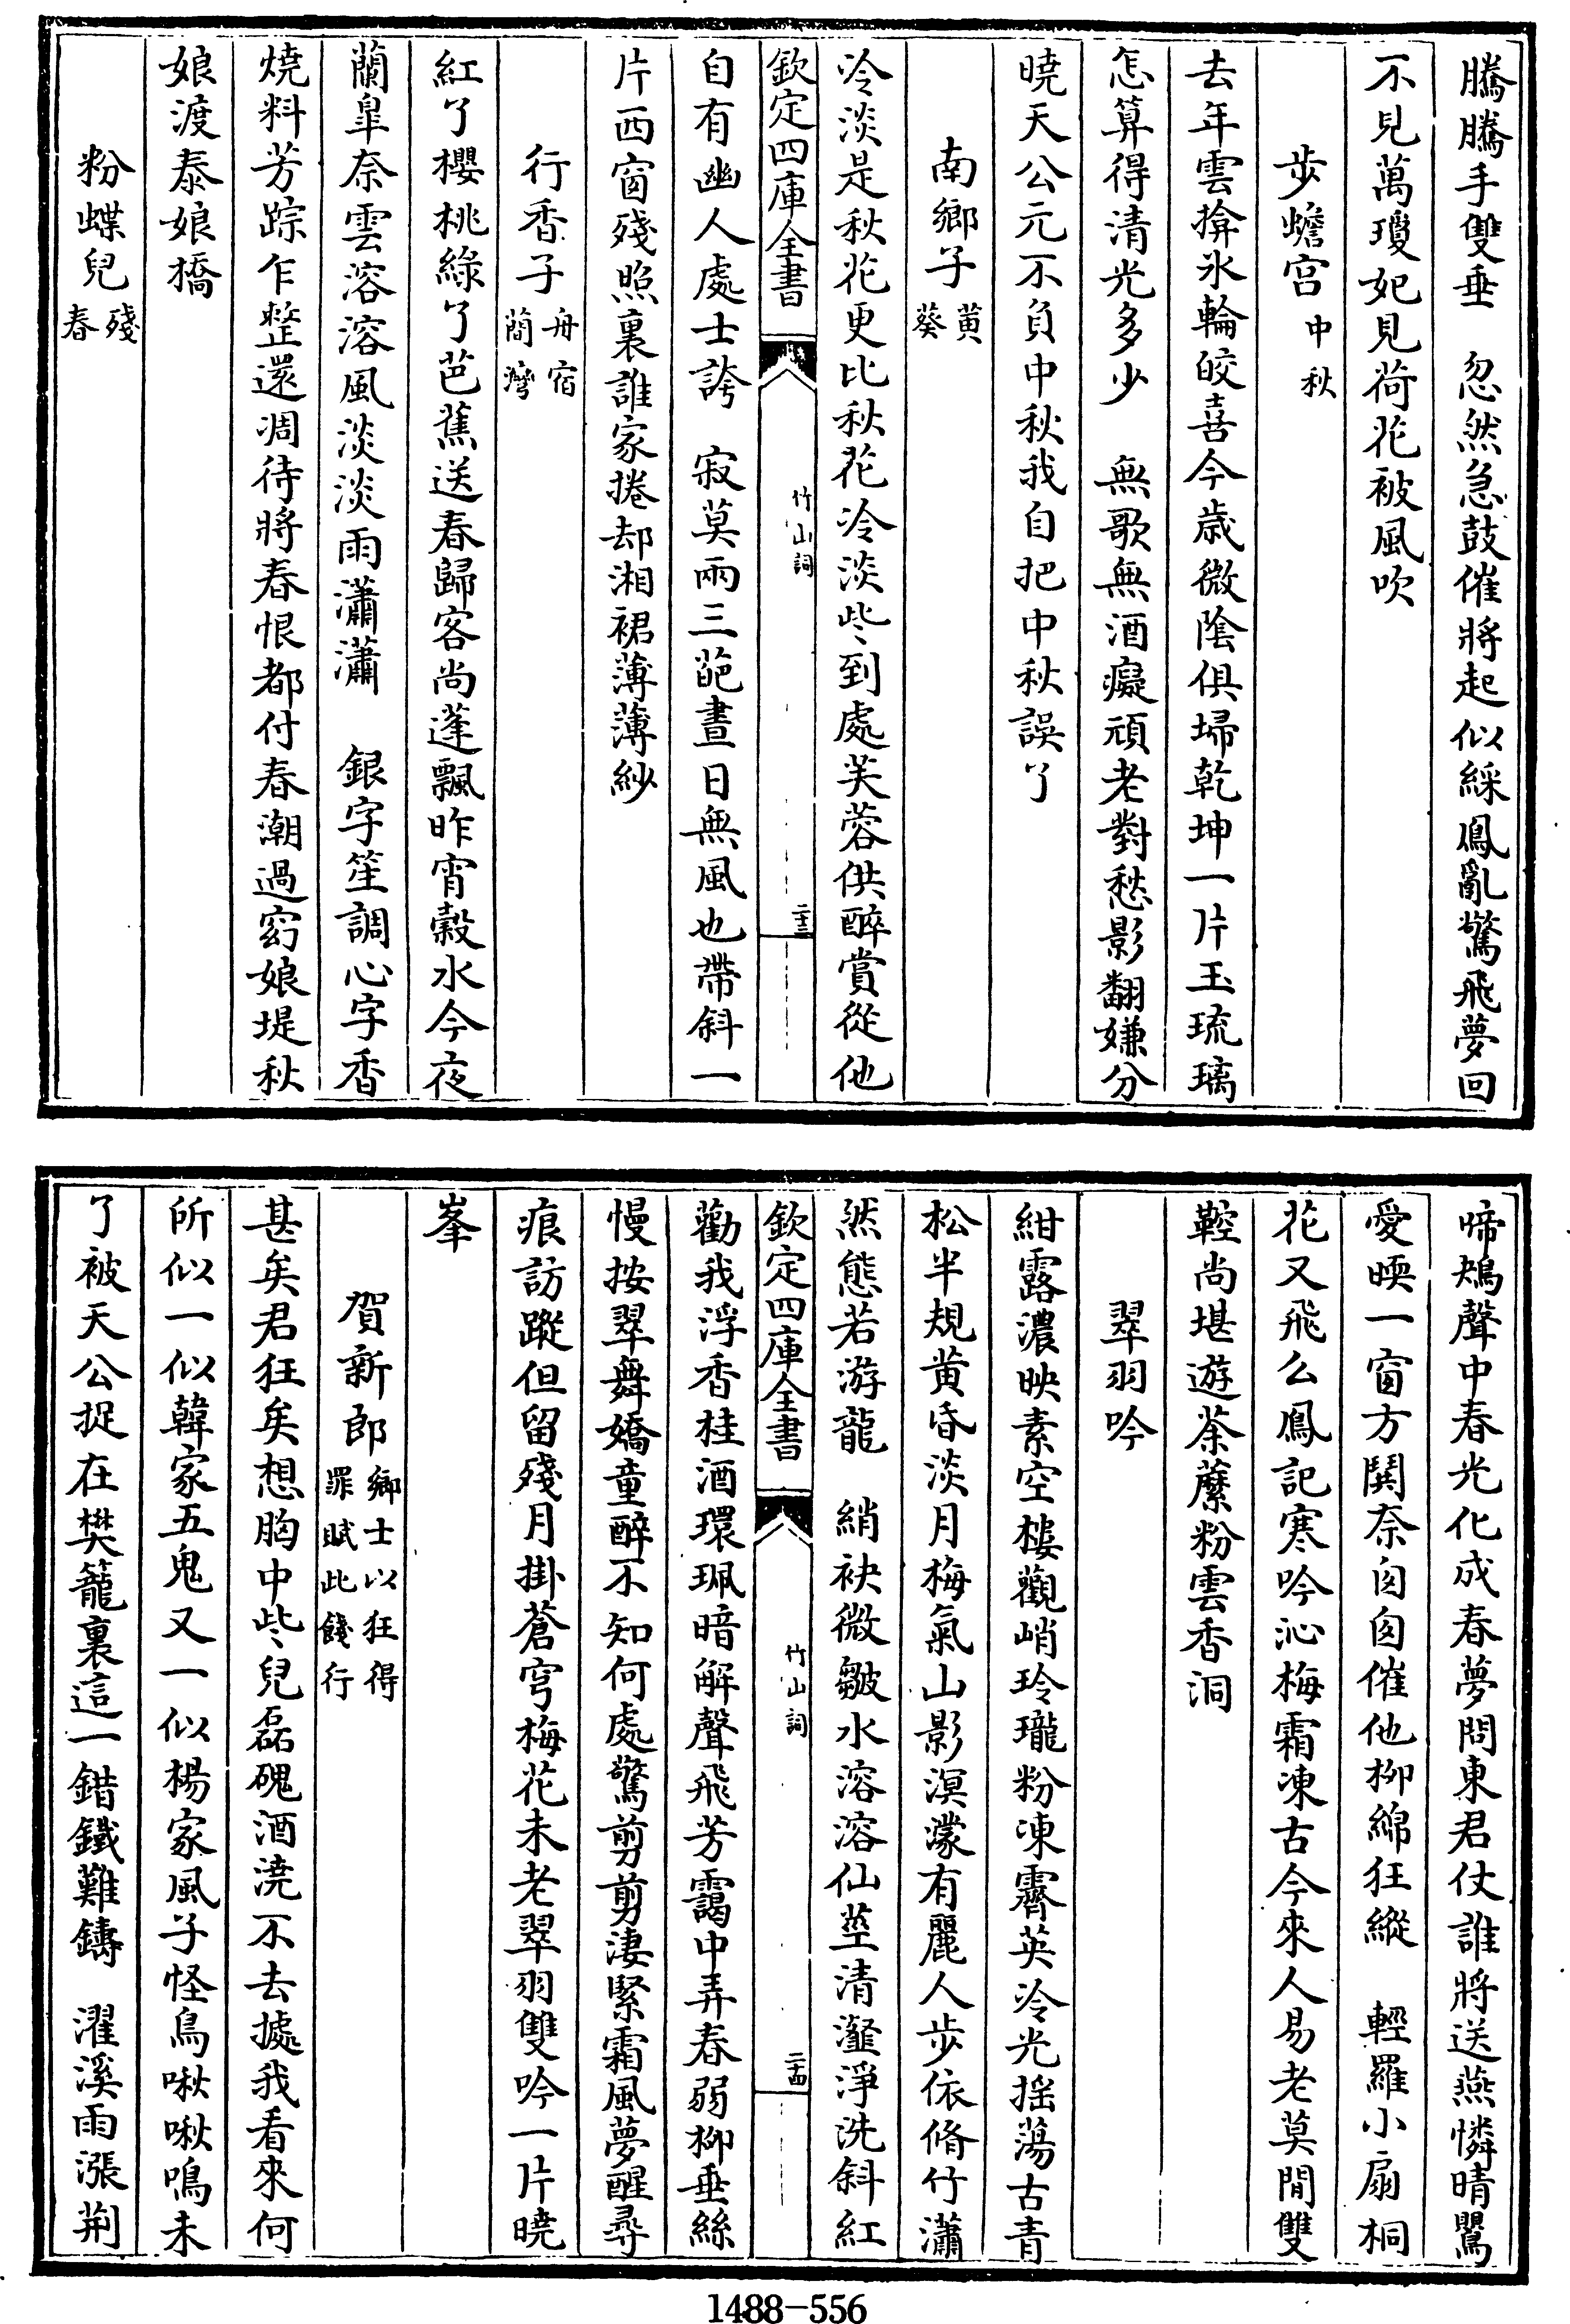 騰騰手雙垂　忽然急鼓催將起似綵鳳亂驚飛夢回
不見萬瓊妃見荷花被風吹
步蟾宮中秋
去年雲揜氷輪皎喜今歲微陰俱埽乾坤一片玉琉璃
怎算得清光多少　無歌無酒癡頑老對愁影翻嫌分
曉天公元不負中秋我自把中秋誤了
南鄉子黄葵
冷淡是秋花更比秋花冷淡些到處芙蓉供醉賞從他
欽定四庫全書　竹山詞　二十三
自有幽人處士誇　寂莫兩三葩晝日無風也帶斜一
片西窗殘照裏誰家捲却湘裙薄薄紗
行香子舟宿蕑灣
紅了櫻桃綠了芭蕉送春歸客尚蓬飄昨宵穀水今夜
蘭臯奈雲溶溶風淡淡雨瀟瀟　銀字笙調心字香
燒料芳踪乍整還凋待將春恨都付春潮過窈娘堤秋
娘渡泰娘橋
粉蝶兒殘春
啼鴂聲中春光化成春夢問東君仗誰將送燕憐晴鸎
愛暎一窗方鬨奈匆匆催他柳綿狂縱　輕羅小扇桐
花又飛么鳳記寒吟沁梅霜凍古今來人易老莫閒雙
鞚尚堪遊荼蘼粉雲香洞
翠羽吟
紺露濃映素空樓觀峭玲瓏粉凍霽英冷光搖蕩古青
松半規黄昏淡月梅氣山影溟濛有麗人步依脩竹瀟
然態若游龍　綃袂微皺水溶溶仙莖清瀣淨洗斜紅
欽定四庫全書　竹山詞　二十四
勸我浮香桂酒環珮暗解聲飛芳靄中弄春弱柳垂絲
慢按翠舞嬌童醉不知何處驚剪剪淒緊霜風夢醒尋
痕訪蹤但留殘月掛蒼穹梅花未老翠羽雙吟一片曉
峯
賀新郎鄉士以狂得罪賦此餞行
甚矣君狂矣想胸中些兒磊磈酒澆不去據我看來何
所似一似韓家五鬼又一似楊家風子怪鳥啾啾鳴未
了被天公捉在樊籠裏這一錯鐵難鑄　濯溪雨漲荆
1488-556